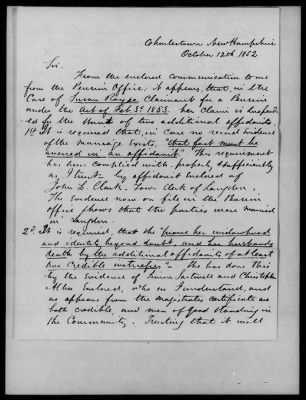 Charlestown New Hampshire
October 12th 1852
Sir.
From the enclosed communication to me
from the Pension Office; it appears, that, in the
Case of Susan Royce Claimant for a Pension
under the Act of Feb. 3d. 1853. her claim is suspend
ed for the want of two additional affidavits
1st It is required that, in case no record evidence
of the marriage exists, "that fact must be
averred in an affidavit." This requirement
has been complied with properly & sufficiently
as I trust - by affidavit enclosed of
John L. Clark. Town Clerk of Langdon.
The Evidence now on file in the Pension
office shows that the parties were married
in Langdon.
2d. It is required, that she "prove her widowhood
and identity beyond doubt, and her husband's
death by the additional affidavits of at least
two credible witnesses" - She has done this
by the evidence of and Christopher
Allen Enclosed, who as I understand, and
as appears from the Magistrates certificate are
both credible, and men of good standing in
the Community. Trusting that it will